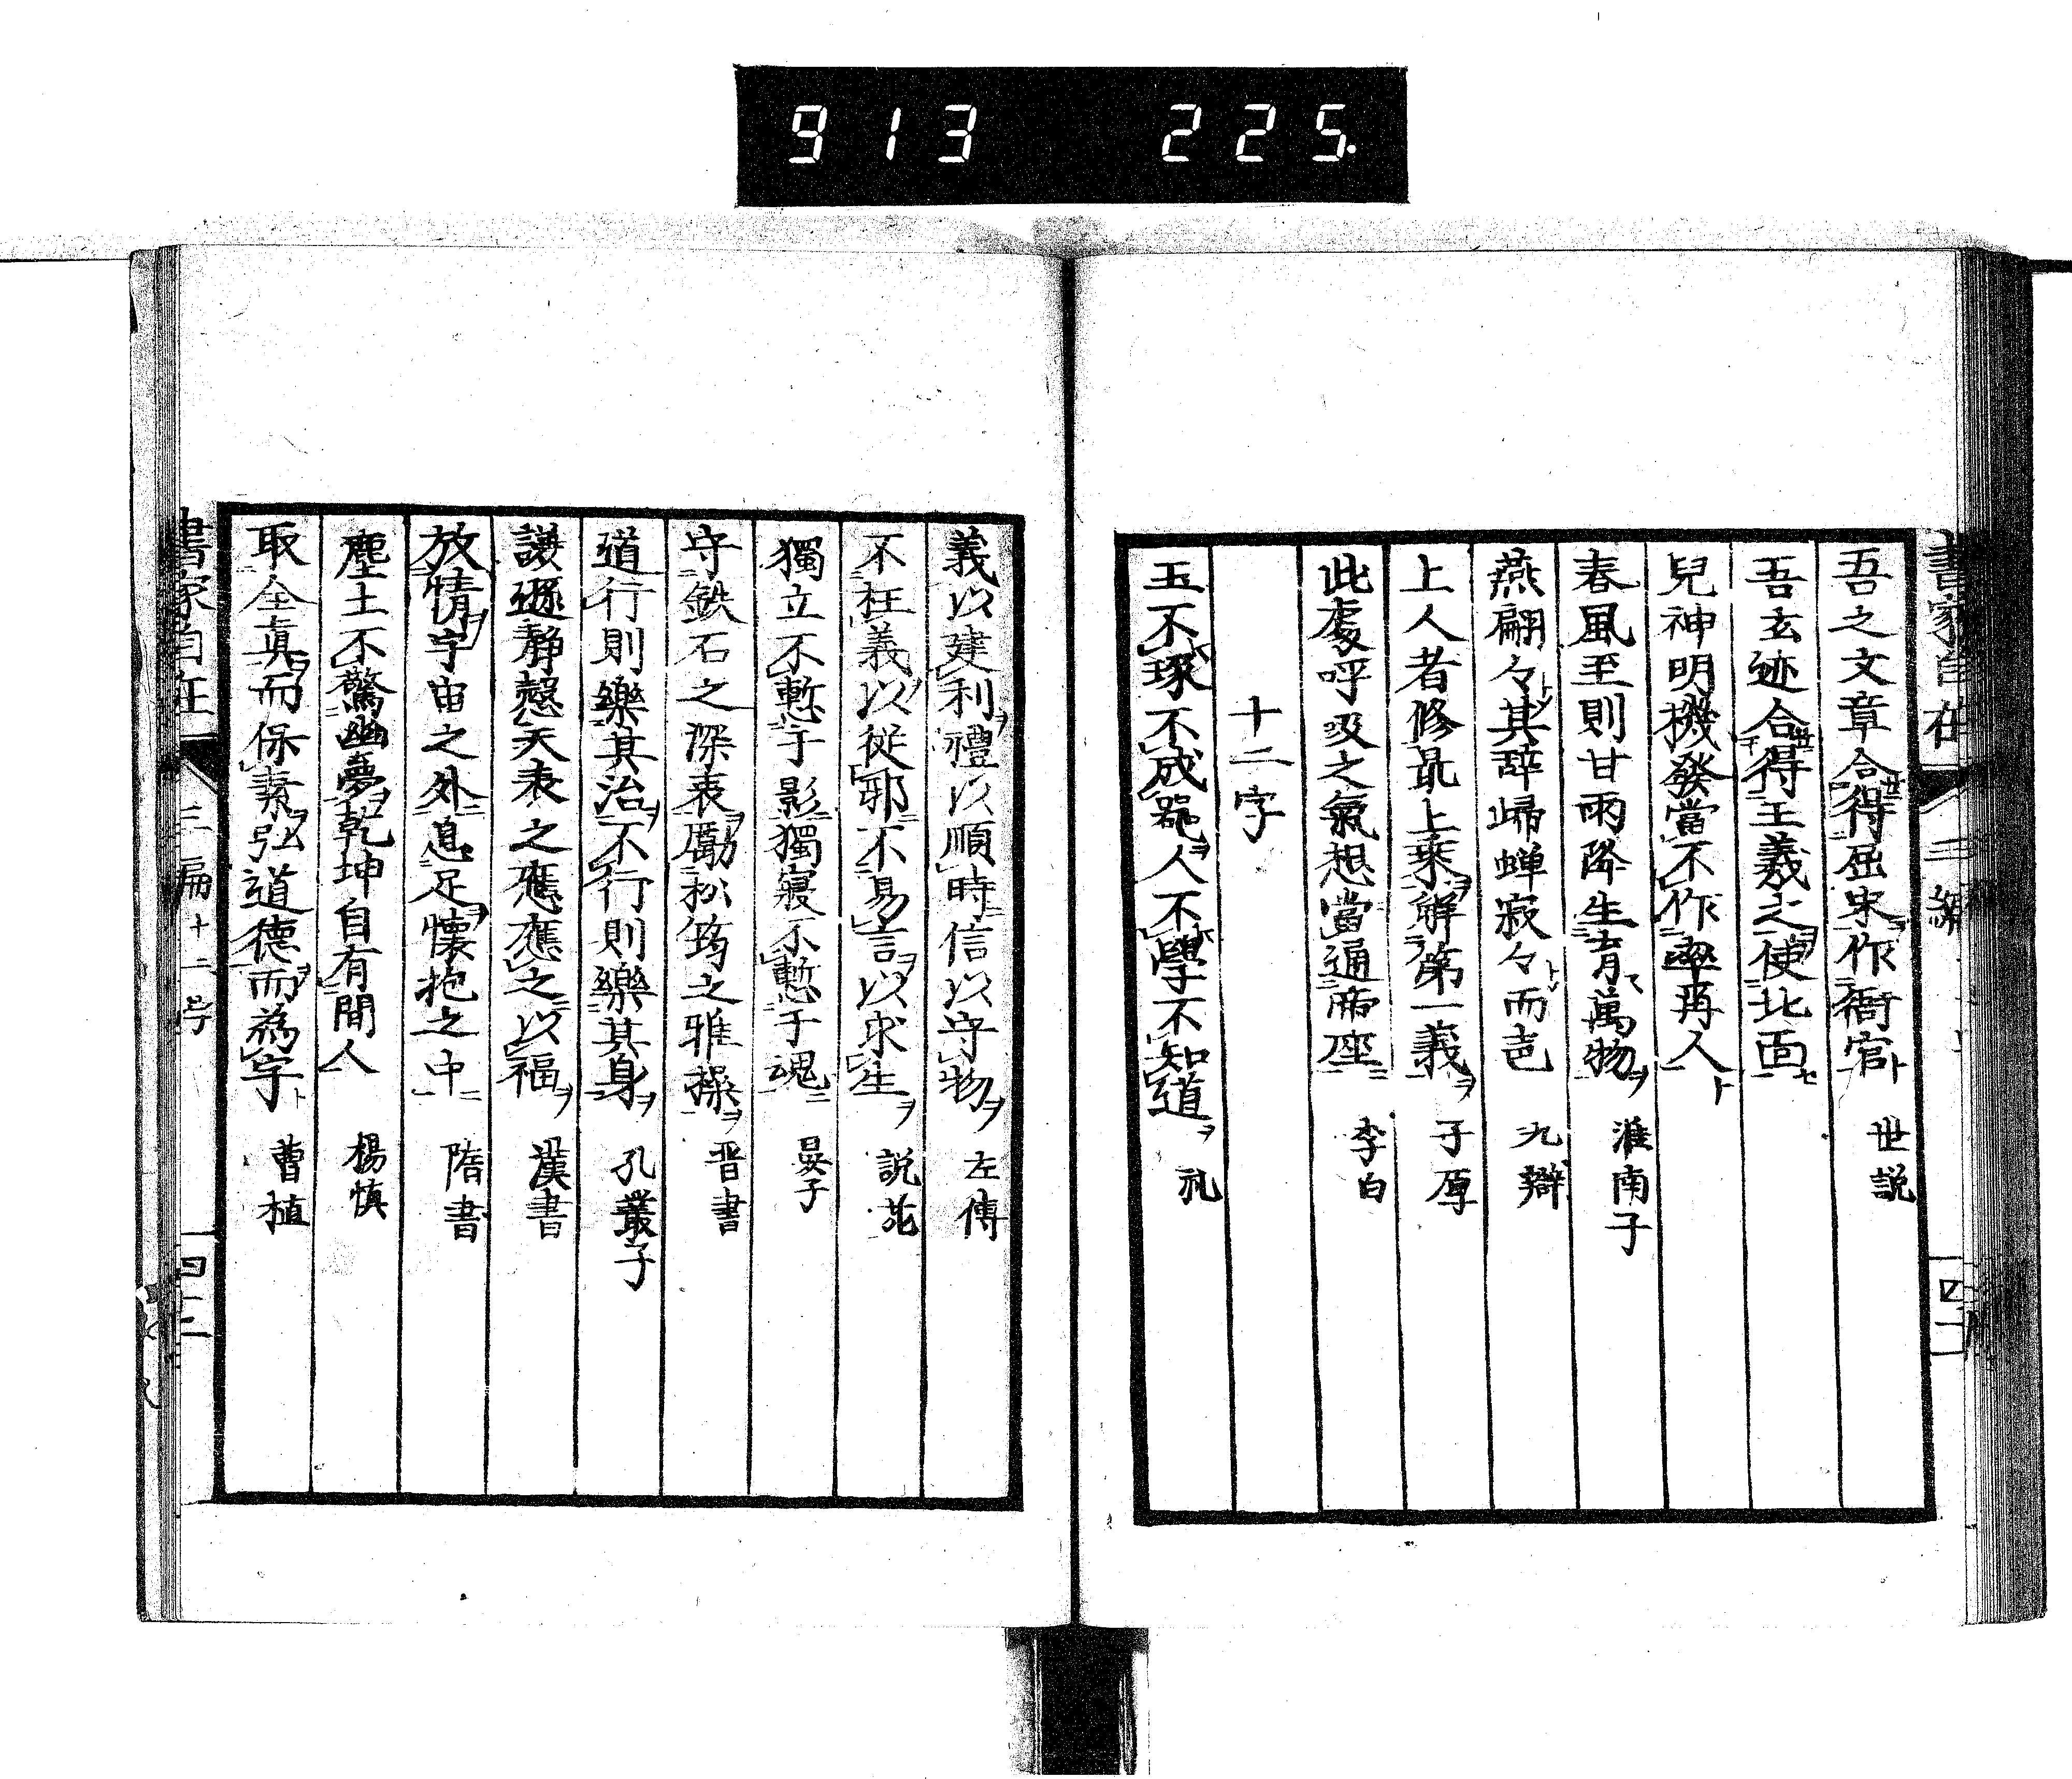 913 225.
吾之文章合得屈宋作衙官 世説
吾玄迹合得王羲之使北面
兒神明機發當不作率再人
春風至則甘雨降生育萬物 淮南子
燕翩々其辞歸蝉寂々而
上人者修最上乗解第一義 子厚
此處呼吸之氣想當通帝座 李白
十二字
玉不琢不成器人不學不知道 礼
義以建利禮以順時信以守物 左傳
不枉義以從邪不易言以求生 説苑
獨立不慙于影獨寢不慙于魂 晏子
守鉄石之深衷勵松筠之雅操 晋書
道行則樂其治不行則樂其身 孔叢子
謙遜静愨天表之應應之以福 漢書
放情宇宙之外息足懐抱之中 隋書
塵土不驚幽夢乾坤自有間人 楊慎
取全眞而保素弘道德而為宇 曹植
書家自在 三編 十二 四十二